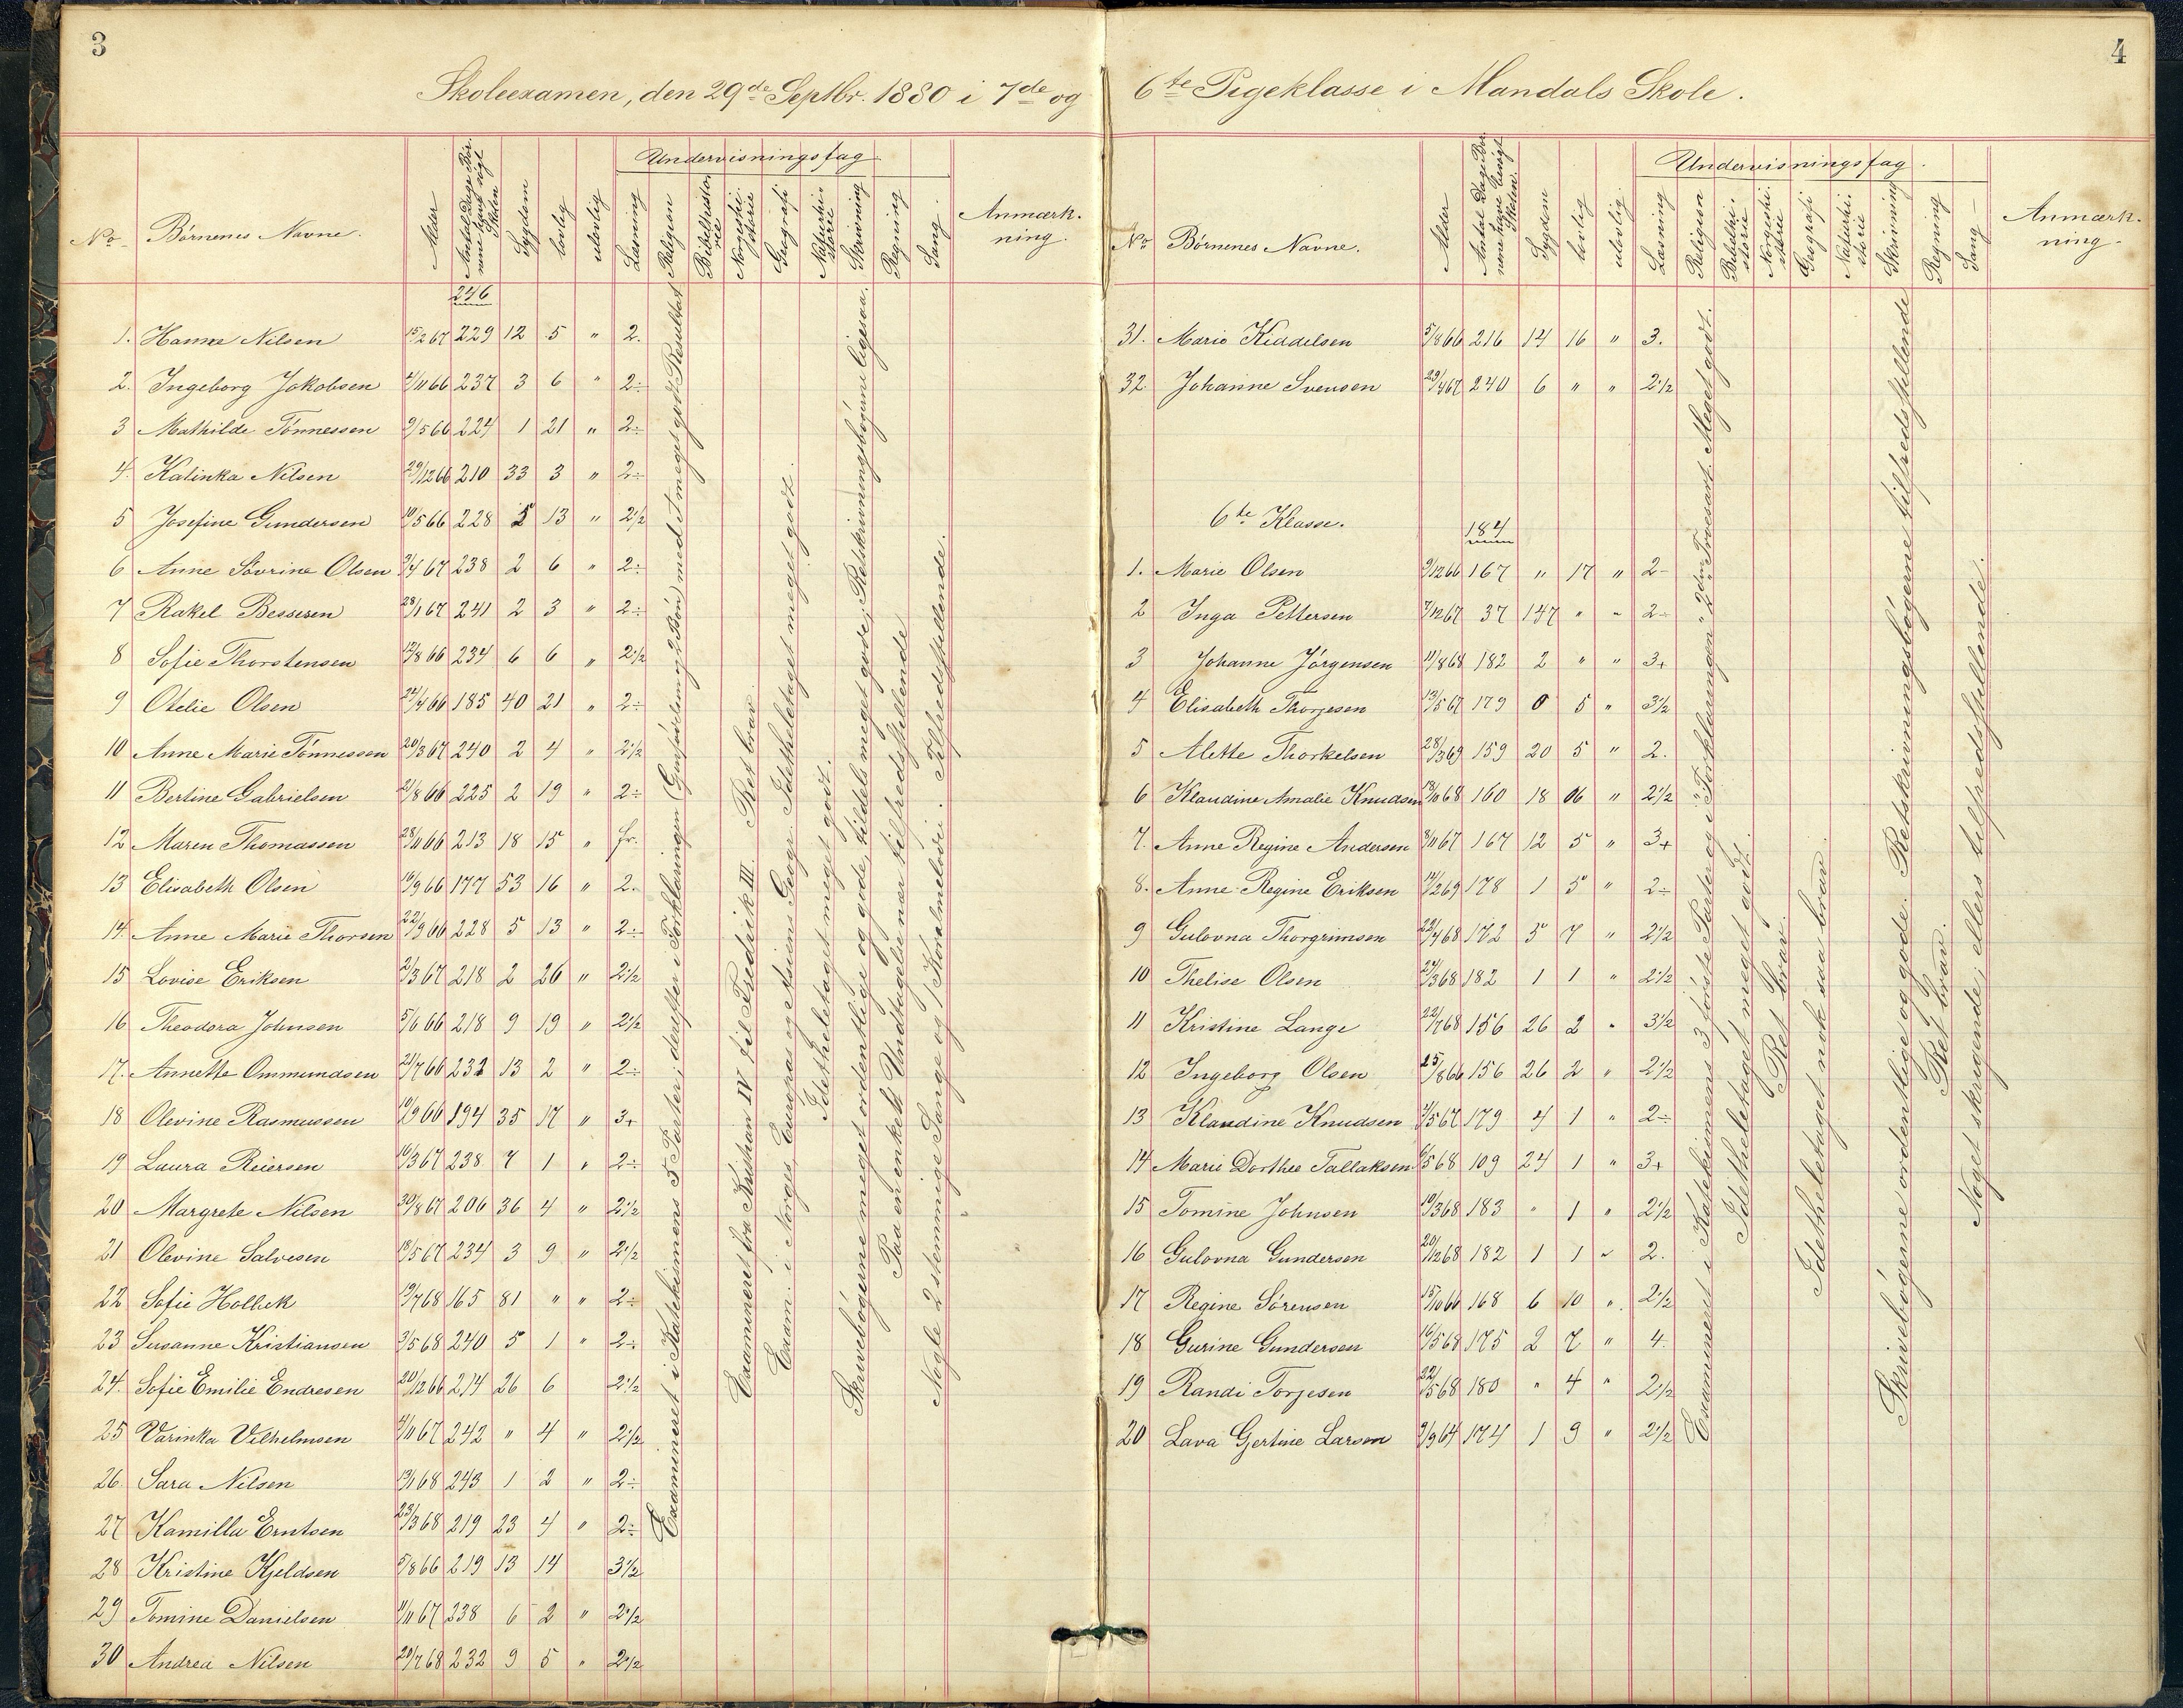 3
Skoleexamen, den 29de Septbr. 1880 i 7de og
Undervisningsfag
No
Børnenes Navne.
Alder
Antal Dage Børnene have søgt Skolen
Sygdom
lovlig
ulovlig
Læsning
Religion
Bibelhistorie
Norgeshistorie
Geografi
Naturhistorie
Skrivning
Regning
Sang.
Anmærkning.
246
1. Hanne Nilsen 15/2 67 229 12 5 " 2.
2. Ingeborg Jakobsen 4/11 66 237 3 6 " 2÷
3 Mathilde Tønnessen 9/5 66 224 1 21 " 2÷
4. Kalinka Nilsen 29/12 66 210 33 3 " 2÷
5 Josefine Gundersen 10/5 66 228 5 13 " 2½
6 Anne Sovrine Olsen 67 238 2 6 " 2÷
7 Rakel Bessesen 28/1 67 241 2 3 " 2÷
8 Sofie Thorstensen 17/8 66 234 6 6 " 2½
9 Otelie Olsen 24/4 66 185 40 21 " 2÷
10 Anne Marie Tønnessen 20/3 67 240 2 4 " 2½
11 Bertine Gabrielsen 21/8 66 225 2 19 " 2÷
12 Maren Thomassen 28/11 66 213 18 15 " fr.
13 Elisabeth Olsen 16/9 66 177 53 16 " 2.
14. Anne Marie Thorsen 22/9 66 228 5 13 " 2÷
15 Lovise Eriksen 2/3 67 218 2 26 " 2½
16 Theodora Johnsen 5/6 66 218 9 19 " 2½
17. Annette Ommundsen 21/7 66 232 13 2 " 2÷
18 Olevine Rasmussen 19/9 66 194 35 17 " 3+
19 Laura Reiersen 16/3 67 238 7 1 " 2÷
20 Margrete Nilsen 30/8 67 206 36 4 " 2½
21 Olevine Salvesen 18/5 67 234 3 9 " 2½
22 Sofie Holbek 19/7 68 165 81 " " 2÷
23 Susanne Kristiansen 3/5 68 240 5 1 " 2÷
24. Sofie Emilie Endresen 20/12 66 214 26 6 2½
25 Varinka Vilhelmsen 4/11 67 242 " 4 " 2½
26 Sara Nilsen 13/1 68 243 1 2 " 2÷
27 Kamilla Erntsen 23/3 68 219 23 4 " 2÷
28 Kristine Kjeldsen 5/8 66 219 13 14 3½
29 Tomine Danielsen 11/11 67 238 6 2 " 2½
30 Andrea Nilsen 29/7 68 232 9 5 " 2½
Examineret i Katekismens 5 Parter, derefter i Forklaringen (Gjenfødelsen og Bøn) med et meget godt Resultat
Examineret fra Kristian IV til Fredrik III. Ret brav
Exam. i Norges, Europas og Asiens Geogr. Idetheletaget meget godt.
Idetheletaget meget godt.
Skrivebøgerne meget ordentlige og gode, tildels meget gode; Retskrivningbøgerne ligesaa.
Paa en enkelt Undtagelse nær tilfredsstillende
Nogle 2 stemmige Sange og 1 Koralmelodi. Tilfredsstillende.
4
6te Pigeklasse i Mandals Skole.
Undervisningsfag.
No
Børnenes Navne.
Alder
Antal Dage Børnene have besøgt Skolen.
Sygdom
lovlig
ulovlig
Læsning
Religion
Bibelhistorie
Norgeshistorie
Geografi
Naturhistorie
Skrivning
Regning
Sang
Anmærkning.
31. Marie Kiddelsen 5/8 66 216 14 16 " 3.
32. Johanne Svensen 29/4 67 240 6 " " 2½
6te Klasse.
184
1. Marie Olsen 9/12 66 167 " 17 " 2-
2 Inga Pettersen 7/12 67 37 147 " " 2÷
3 Johanne Jørgensen 11/8 68 182 2 " " 3+
4 Elisabeth Thorjesen 13/5 67 179 0 5 " 3½
5 Alette Thorkelsen 28/3 69 159 20 5 " 2.
6 Klaudine Amalie Knudsen 13/10 68 160 18 06 " 2½
7. Anne Regine Andersen 8/11 67 167 12 5 " 3+
8. Anne Regine Eriksen 14/2 69 178 1 5 " 2÷
9 Gulovna Thorgrimsen 22/4 68 172 5 7 " 2½
10 Thelise Olsen 24/3 68 182 1 1 " 2½
11 Kristine Lange 22/7 68 156 26 2 " 3½
12 Ingeborg Olsen 25/8 66 156 26 2 " 2½
13 Klaudine Knudsen 5 67 179 4 1 " 2÷
14 Marie Dorthee Tallaksen 6/5 68 109 24 1 " 3+
15 Tomine Johnsen 19/3 68 183 " 1 " 2½
16 Gulovna Gundersen 20/12 68 182 1 1 " 2.
17 Regine Sørensen 15/10 66 168 6 10 " 2½
18 Gurine Gundersen 16/5 68 175 2 7 " 4.
19 Randi Torjesen 22/5 68 180 " 4 " 2½
20 Lava Gjertine Larsen 9/9 64 174 1 9 " 2½
Examineret i Katekismens 3 første Parter og i Forklaringen: "2den Troesart. Meget godt.
Idetheletaget meget godt.
Ret brav.
Idetheletaget nok saa brav.
Skrivebøgerne ordentlige og gode. Retskrivningsbøgerne tilfredsstillende
Ret brav.
Noget skrigende, ellers tilfredsstillende.